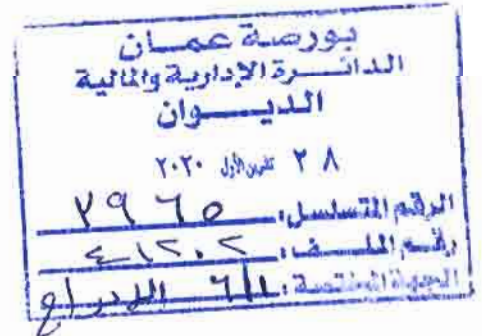 بورصة عمان
الدائرة الإدارية والمالية
الديوان
٢٨ تشرين الأول ٢٠٢٠
الرقم المتسلسل: ٢٩٦٥
رقم الملف: ٤١٢٠٢
الجهة المختصة: الإدراج